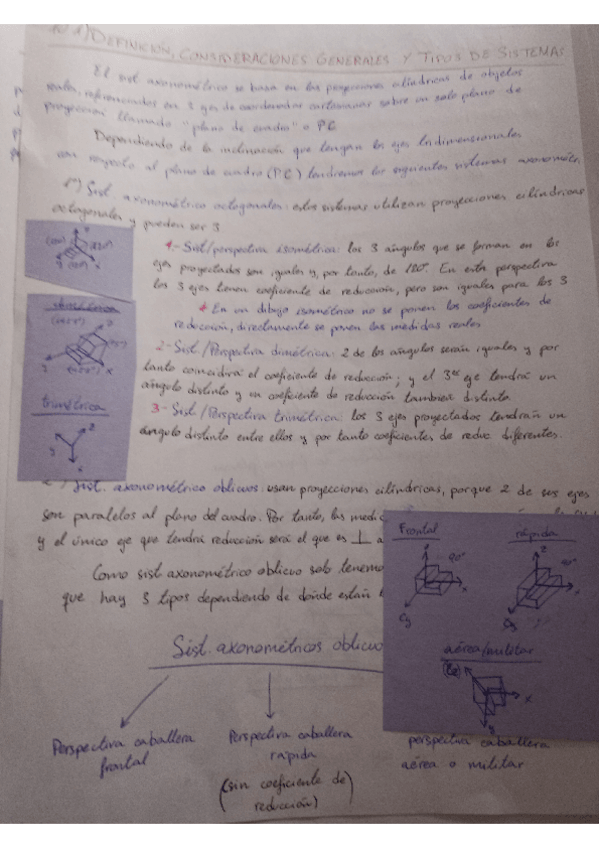 10.1) DEFINICIÓN, CONSIDERACIONES GENERALES Y TIPOS DE SISTEMAS
El sist axonométrico se basa en las proyecciones cilíndricas de objetos
reales, referenciados en 3 ejes de coordenadas cartesianas sobre un solo plano de
proyección llamado "plano de cuadro" o PC
Dependiendo de la inclinación que tengan los ejes tridimensionales
con respecto al plano de cuadro (PC) tendremos los siguientes sistemas axonométr.
1º) Sist. axonométrico octogonales: estos sistemas utilizan proyecciones cilíndricas
octogonales y pueden ser 3
1- Sist/perspectiva isométrica: los 3 ángulos que se forman en los
ejes proyectados son iguales y, por tanto, de 120°. En esta perspectiva
los 3 ejes tienen coeficiente de reducción, pero son iguales para los 3
* En un dibujo isométrico no se ponen los coeficientes de
reducción, directamente se ponen las medidas reales
2- Sist/Perspectiva dimétrica: 2 de los ángulos serán iguales y por
tanto coincidirá el coeficiente de reducción; y el 3er eje tendrá un
ángulo distinto y un coeficiente de reducción también distinto.
3- Sist/Perspectiva trimétrica: los 3 ejes proyectados tendrán un
ángulo distinto entre ellos y por tanto coeficientes de reduc diferentes.
trimétrica
Sist. axonométrico oblicuos: usan proyecciones cilíndricas, porque 2 de sus ejes
son paralelos al plano del cuadro. Por tanto, las
y el único eje que tendrá reducción será el que es ⊥
Como sist axonométrico oblicuo solo tenemos
que hay 3 tipos dependiendo de donde están
Frontal
90°
x
Cy
rápida
z
x
Cy
aérea/militar
x
Sist. axonométricos oblicuo
Perspectiva caballera
frontal
Perspectiva caballera
rápida
(sin coeficiente de
reducción)
perspectiva caballera
aérea o militar